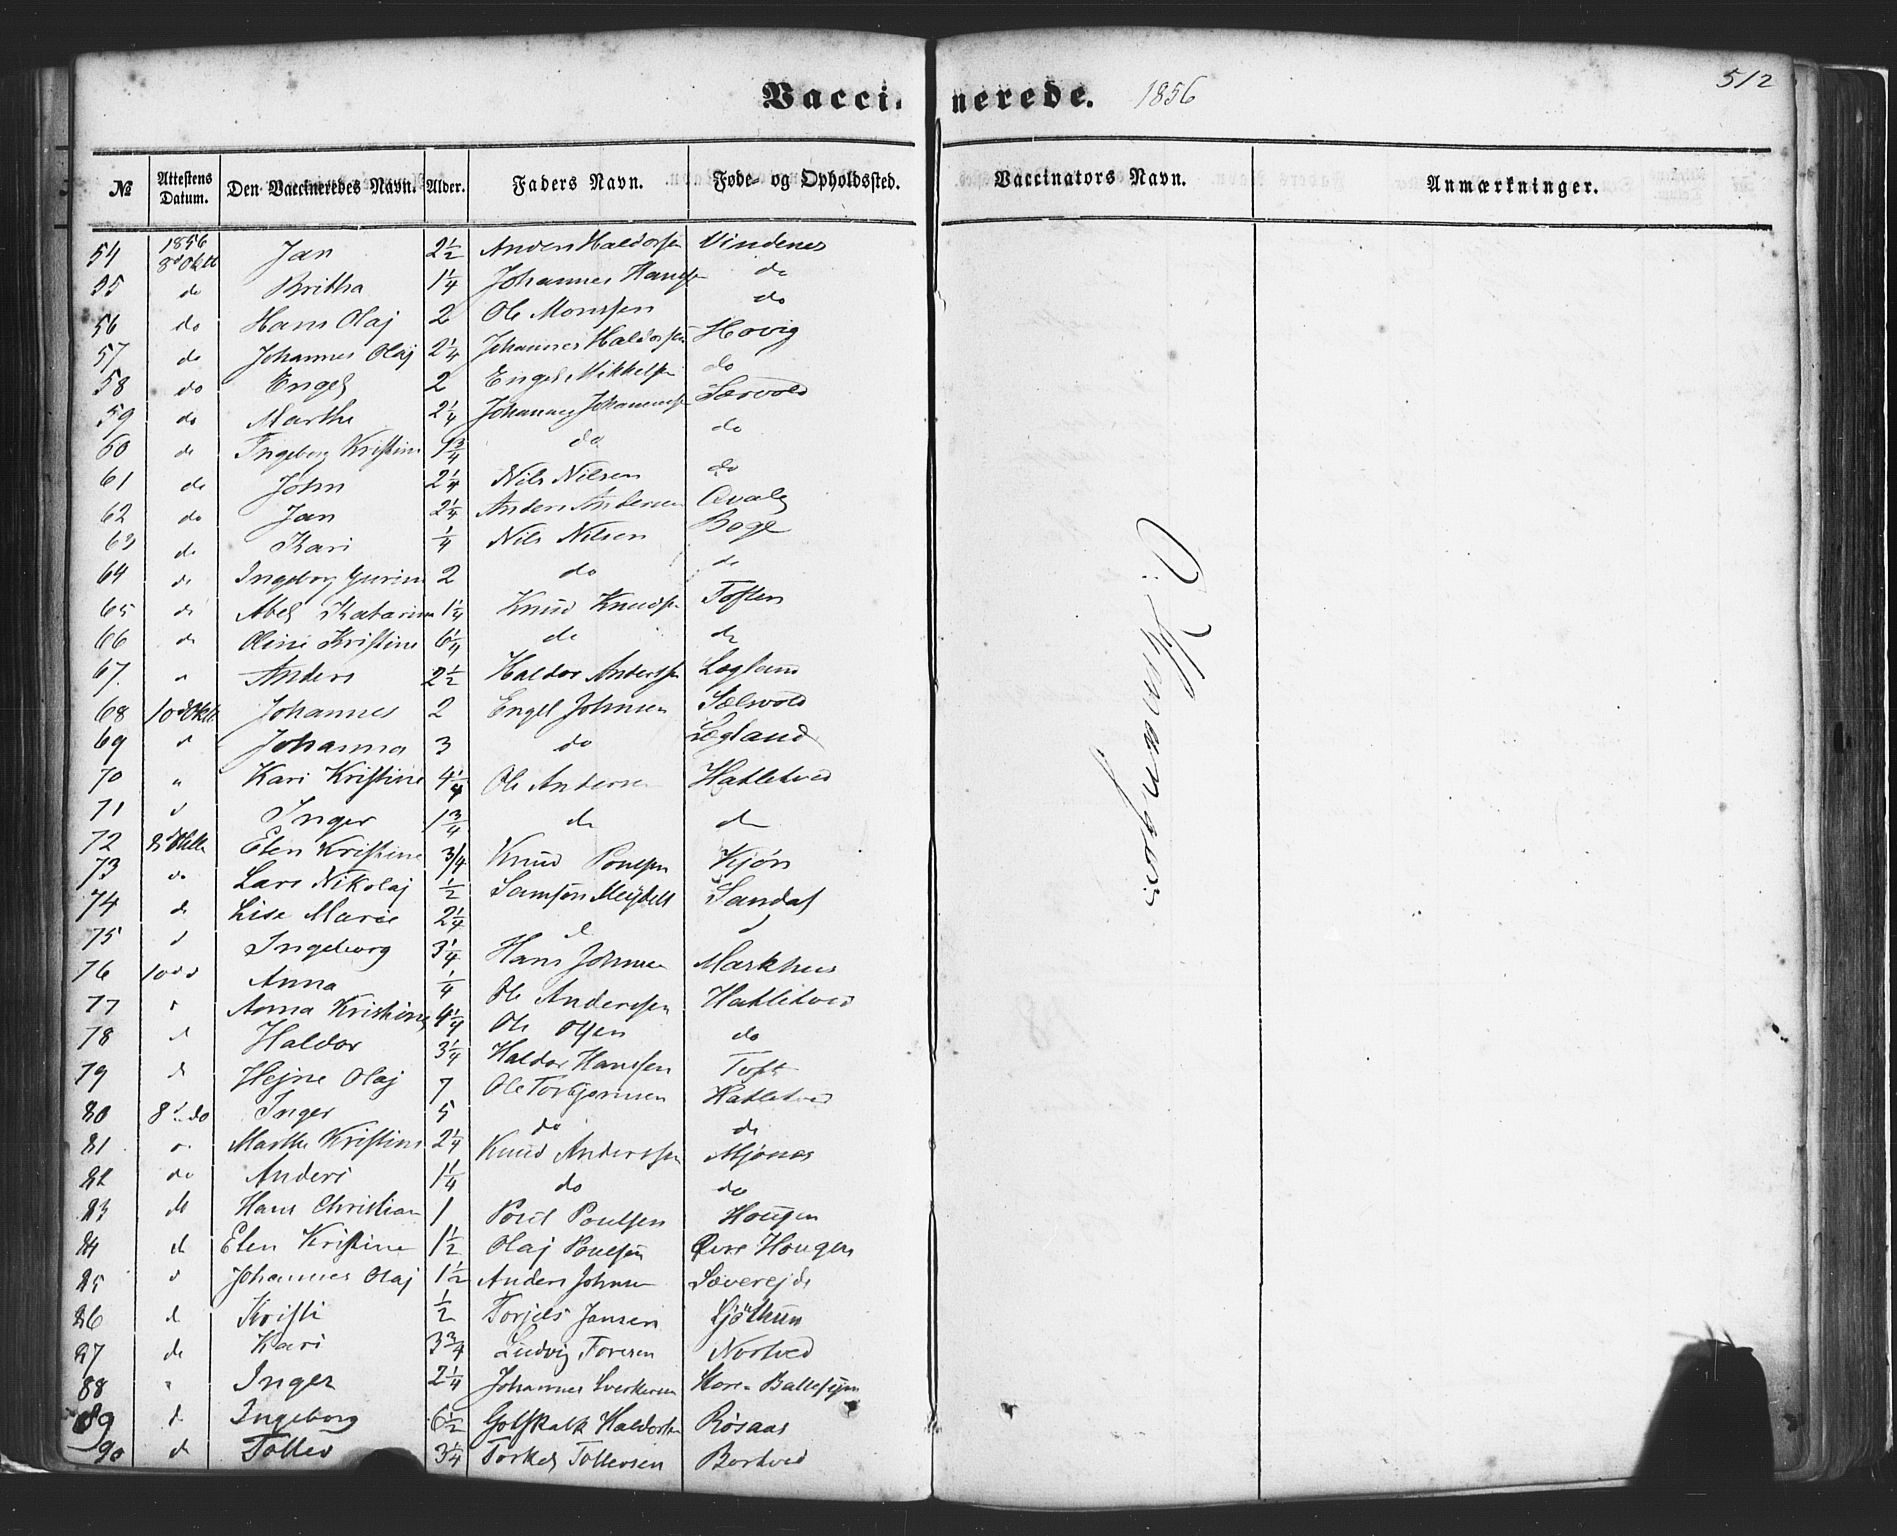 512
Vaccinerede. 1856
№ Attestens Datum. Den Vaccineredes Navn. Alder. Faders Navn. Føde- og Opholdssted. Vaccinators Navn. Anmærkninger.
54 1856 8d Oktb Jan 2½ Anders Haldorsen Vindenes
55 do Britha 1¼ Johannes Hansen do
56 do Hans Olaj 2 Ole Monssen do
57 do Johannes Olaj 2¼ Johannes Haldorsen Hovig
58 do Engel 2 Engel Mikkelsen do
59 do Marthe 2¼ Johannes Johannessen Særvold
60 do Ingeborg Kristine 1¾ do do
61 do John 2¼ Nils Nilsen do
62 do Jan 2¼ Anders Andersen Qvale
63 do Kari ¼ Nils Nilsen Boge
64 do Ingeborg Gurine 2 do do
65 do Abel Katarina 1¼ Knud Knudsen Toften
66 do Oline Kristine 6¼ do do
67. " Anders 2½ Haldor Anderssen Legland
68 10d Oktb Johannes 2 Engel Johnsen Sælvold
69 d Johanna 3 do Legland
70 " Kari Kristine 4¼ Ole Andersen Hatletved
71 d Inger 1¾ do do
72 8d Oktb Elen Kristine 3/4 Knud Poulsen Kjøn
73 do Lars Nikolaj ½ Samson Meydell Sandal
74 d Lise Marie 2¼ d d
75 d Ingeborg 3¼ Hans Johnsen Markhus
76 10 d d Anna ¼ Ole Anderssen Hatletved
77 " Anna Kristine 4¼ Ole Olsen do
78 d Haldor 3¼ Haldor Hanssen Toft
79 d Hejne Olaj 7 Ole Torbjørnsen Hatletved
80 8d do Inger 5 do do
81 " Marthe Kristine 2¼ Knud Anderssen Mjønes
82 do Anders 1¼ do do
83 do Hans Christian 1 Poul Poulsen Hougen
84 d Elen Kristine 1½ Olaj Poulsen Øvre Hougen
85 d Johannes Olaj 1½ Anders Johnsen Sæverejde
86 d Kristi ½ Torjels Jansen Ljøthun
87 do Kari 3¾ Ludvig Toresen Nortved
88 " Inger 2¼ Johannes Sverkersen Hore-
89 d Ingeborg 6½ Golskalk Haldorsen Røsaas
90 d Tollev 3¼ Torkel Tollevsen Bortved